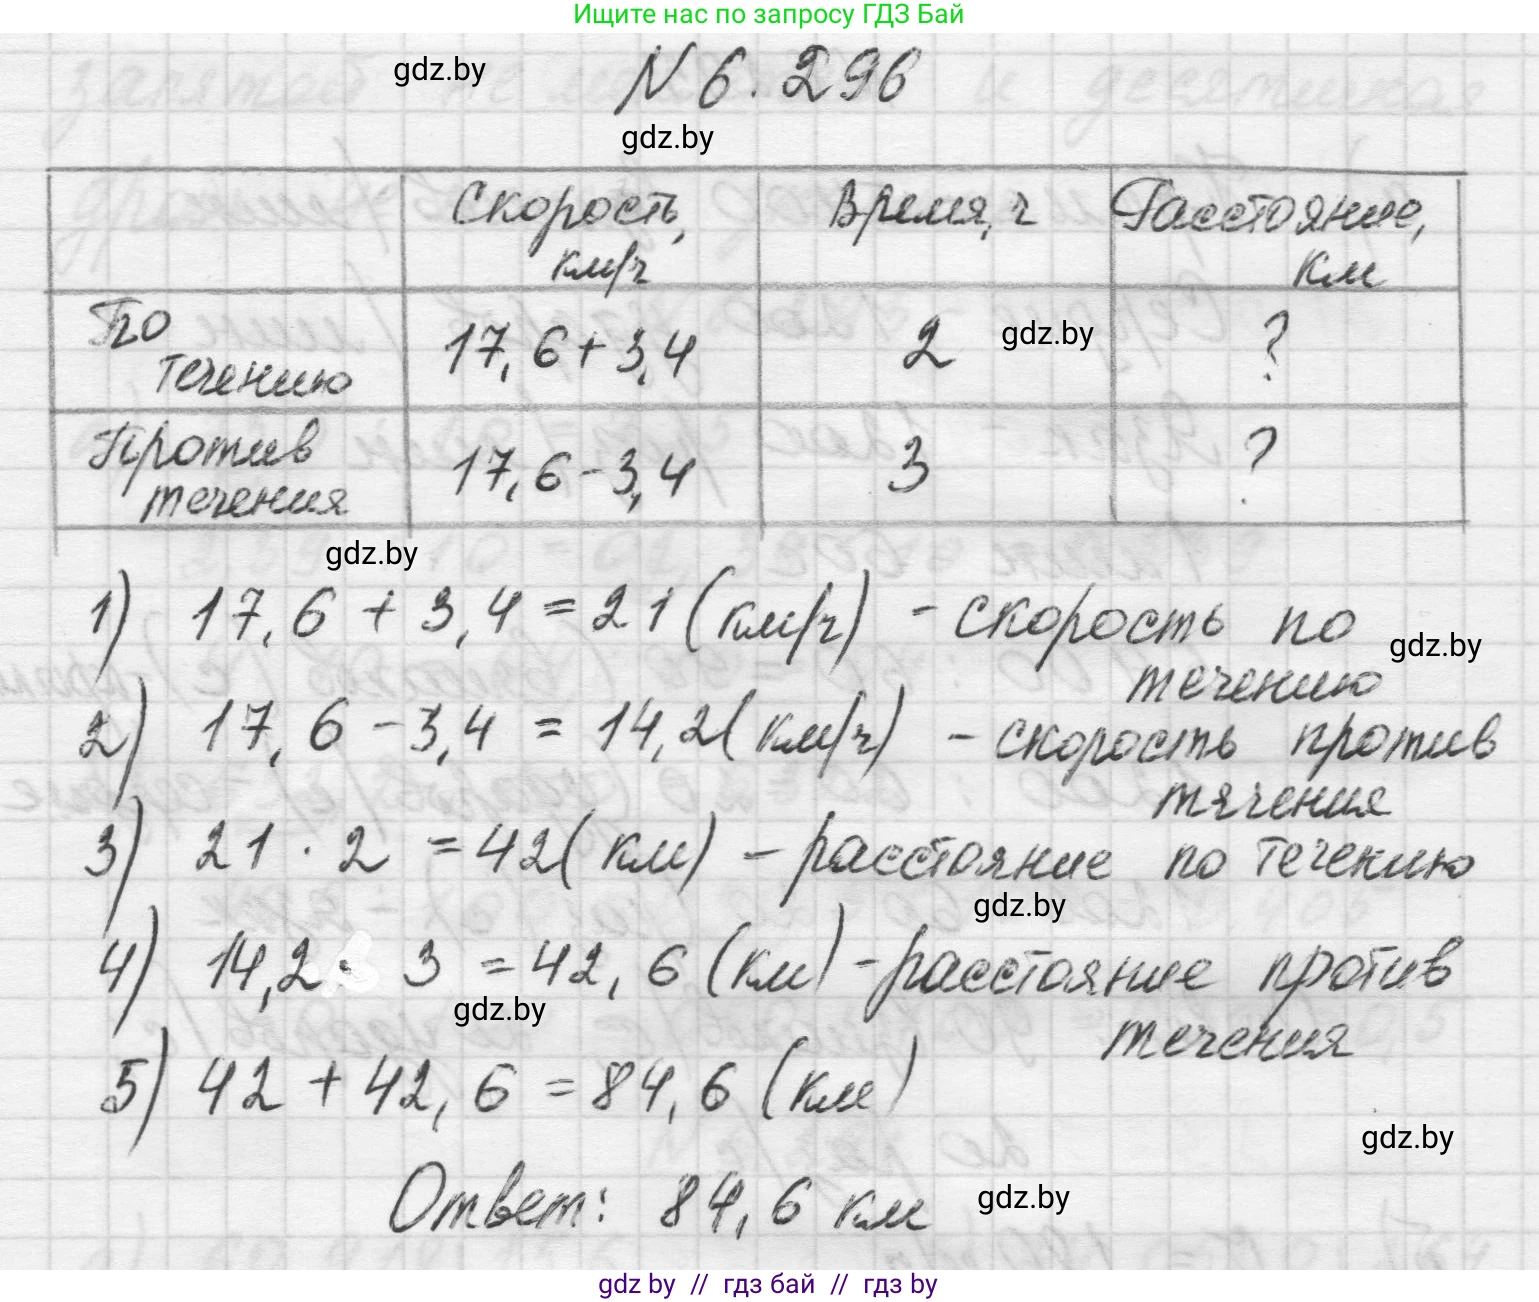 Ищите нас по запросу ГДЗ Бай
gdz.by
N 6.296
gdz.by
Скорость, км/ч
Время, ч
Расстояние, км
По течению
17,6+3,4
2
gdz.by
?
Против течения
17,6-3,4
3
?
gdz.by
1) 17,6 + 3,4 = 21 (км/ч) - скорость по
gdz.by
течению
2) 17,6 - 3,4 = 14,2 (км/ч) - скорость против
тячения
3) 21 · 2 = 42 (км) - расстояние по течению
gdz.by
4) 14,2 · 3 = 42,6 (км) - расстояние против
gdz.by
течения
5) 42 + 42,6 = 84,6 (км)
gdz.by
Ответ: 84,6 км
gdz.by
gdz by // гдз бай // гдз by